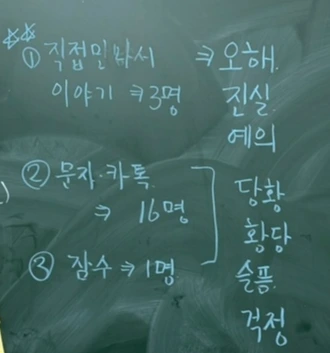 ☆☆
① 직접만나서 ⇒ 오해.
이야기 ⇒ 3명 진실
예의
② 문자·카톡
⇒ 16명
③ 잠수 ⇒ 1명
당황
황당
슬픔.
걱정